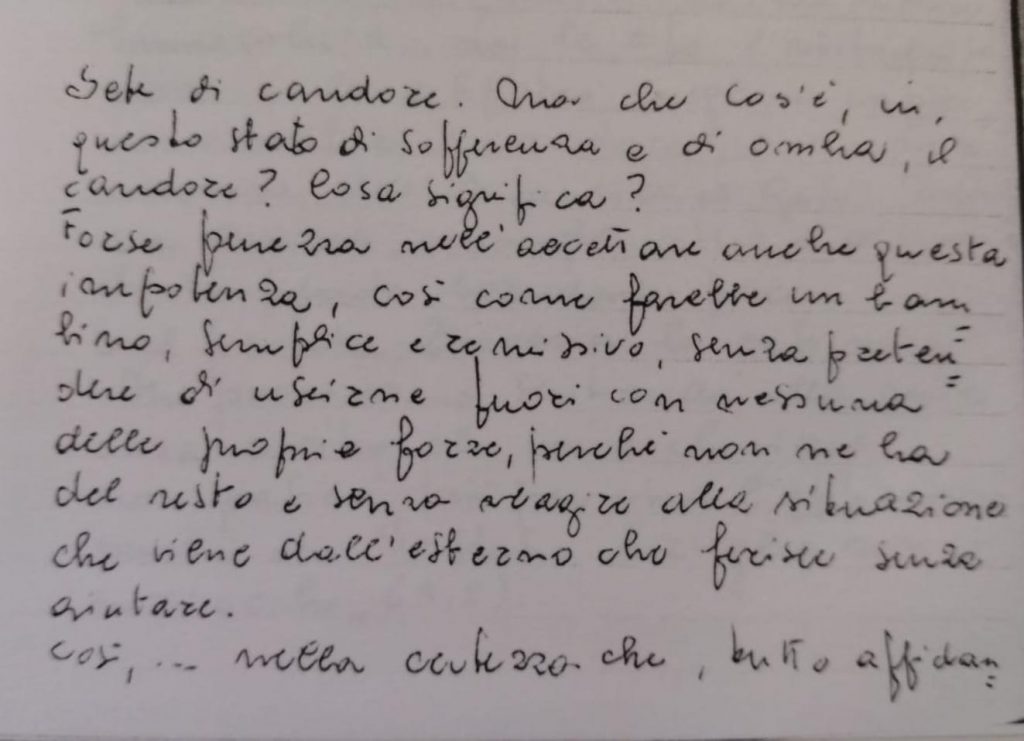 Sete di candore. Ma che cos'è, in,
questo stato di sofferenza e di ombra, il
candore? Cosa significa?
Forse purezza nell'accettare anche questa
impotenza, così come farebbe un bam
bino, semplice e remissivo, senza preten=
dere di uscirne fuori con nessuna
delle proprie forze, perché non ne ha
del resto e senza reagire alla situazione
che viene dall'esterno che ferisce senza
aiutare.
Così, ... nella certezza che, tutto affidan=